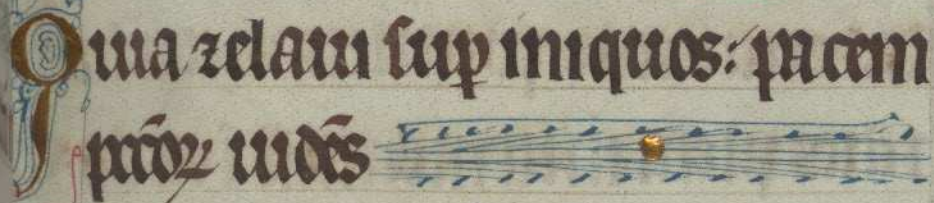 Quia zelaui sup iniquos: pacem
pccōꝝ uidēs